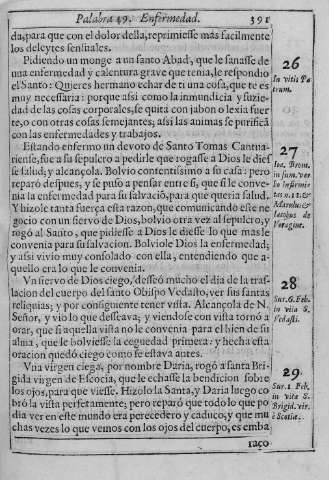 Palabra 49. Enfermedad. 391
da, para que con el dolor della, reprimiesse más facilmente
los deleytes sensuales.
Pidiendo un monge a un santo Abad, que le sanasse de
una enfermedad y calentura grave que tenia, le respondio
el Santo: Quieres hermano echar de ti una cosa, que te es
muy necessaria: porque assi como la inmundicia y suzie-
dad de las cosas corporales, se quita con jabon o lexia fuer
te, o con otras cosas semejantes, assi las animas se purificã
con las enfermedades y trabajos.
Estando enfermo un devoto de Santo Tomas Cantua-
riense, fue a su sepulcro a pedirle que rogasse a Dios le dies
se salud, y alcançola. Bolvio contentissimo a su casa: pero
reparó despues, y se puso a pensar entre si, que si le conve-
nia la enfermedad para su salvaciõ, para que queria salud.
Y hizole tanta fuerça esta razon, que comunicando este ne
gocio con un siervo de Dios, bolvio otra vez al sepulcro, y
rogó al Santo, que pidiesse a Dios le diesse lo que mas le
convenia para su salvacion. Bolviole Dios la enfermedad;
y assi vivio muy consolado con ella, entendiendo que a-
quello era lo que le convenia.
Vn siervo de Dios ciego, desseó mucho el dia de la tras-
lacion del cuerpo del santo Obispo Vedasto, ver sus santas
reliquias; y por consiguiente tener vista. Alcançola de N.
Señor, y vio lo que desseava; y viendose con vista tornó a
orar, que si aquella vista no le convenia para el bien de su
alma, que le bolviesse la ceguedad primera: y hecha esta
oracion quedó ciego como se estava antes.
Vna virgen ciega, por nombre Daria, rogó a santa Bri-
gida virgen de Escocia, que le echasse la bendicion sobre
los ojos, para que viesse. Hizolo la Santa, y Daria luego co
bró la vista perfetamente; pero reparó que todo lo que po
dia ver en este mundo era perecedero y caduco, y que mu
chas vezes lo que vemos con los ojos del cuerpo, es emba
raço
26
In vitis Pa
trum.
27
Ioa. Brom.
in sum. ver
bo infirmi-
tas n. 12. &
Marulus: &
Iacobus de
Voragine.
28
Sur. 6. Feb.
in vita S.
Vedasti.
29.
Sur. 1. Feb.
in vita S.
Brigid. vir.
è Scotia.